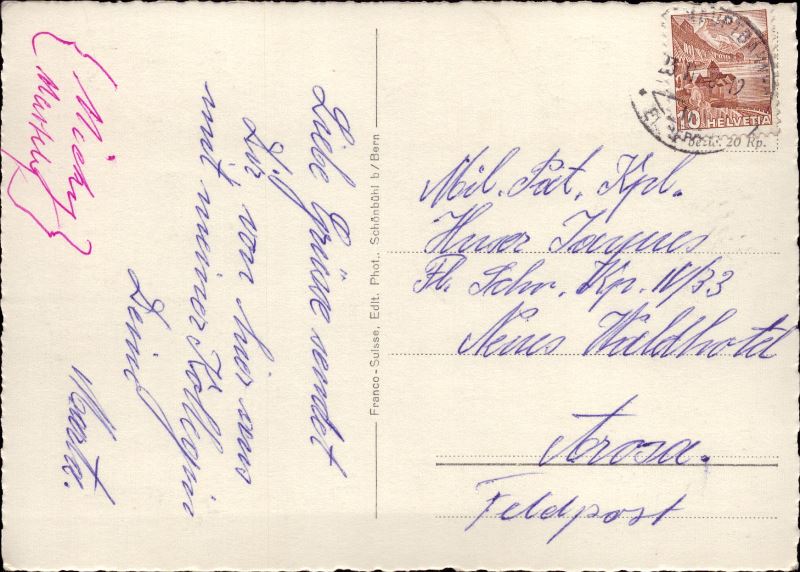 Liebe Grüsse sendet
Dir von hier aus
mit meiner Kollegin
Deine
Marta.
Micky
Franco-Suisse, Edit. Phot., Schönbühl b/Bern
10 HELVETIA
20 Rp.
Mil. Pat. Kpl.
Huser Jaques
Fl. Schw. Kp. IV/33
Neues Waldhotel
Arosa.
Feldpost